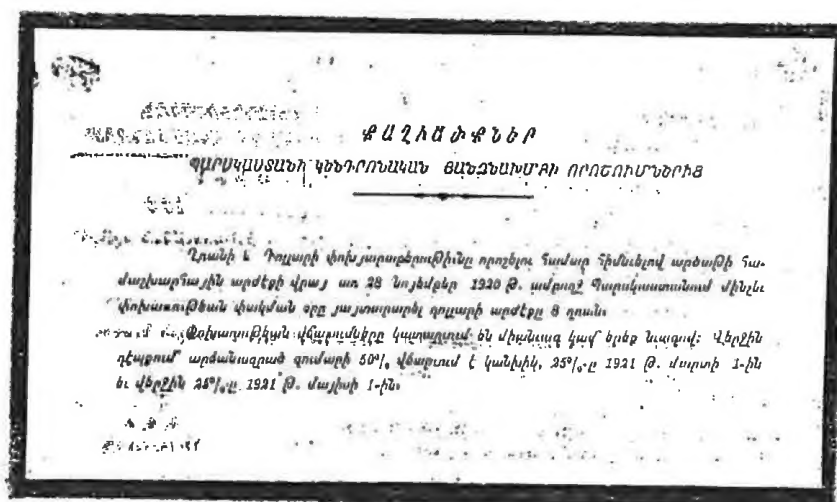 ՔԱՂՈՒԱԾՔՆԵՐ
ՊԱՐՍԿԱՍՏԱՆԻ ԿԵՆԴՐՈՆԱԿԱՆ ՅԱՆՁՆԱԽՄԲԻ ՈՐՈՇՈՒՄՆԵՐԻՑ
Ղրանի և Դոլլարի փոխյարաբերութիւնը որոշելու համար հիմնւելով արծաթի հա-
մաշխարհային արժէքի վրայ առ 28 նոյեմբեր 1920 թ. ամբողջ Պարսկաստանում մինչև
փոխառութեան փակման օրը յայտարարել դոլլարի արժէքը 8 ղռան։
Փոխառութեան վճարումները կատարւում են միանւագ կամ երեք նւագով։ Վերջին
դէպքում արձանագրած գումարի 50% վճարւում է կանխիկ, 25%-ը 1921 թ. մարտի 1-ին
եւ վերջին 25%-ը 1921 թ. մայիսի 1-ին։